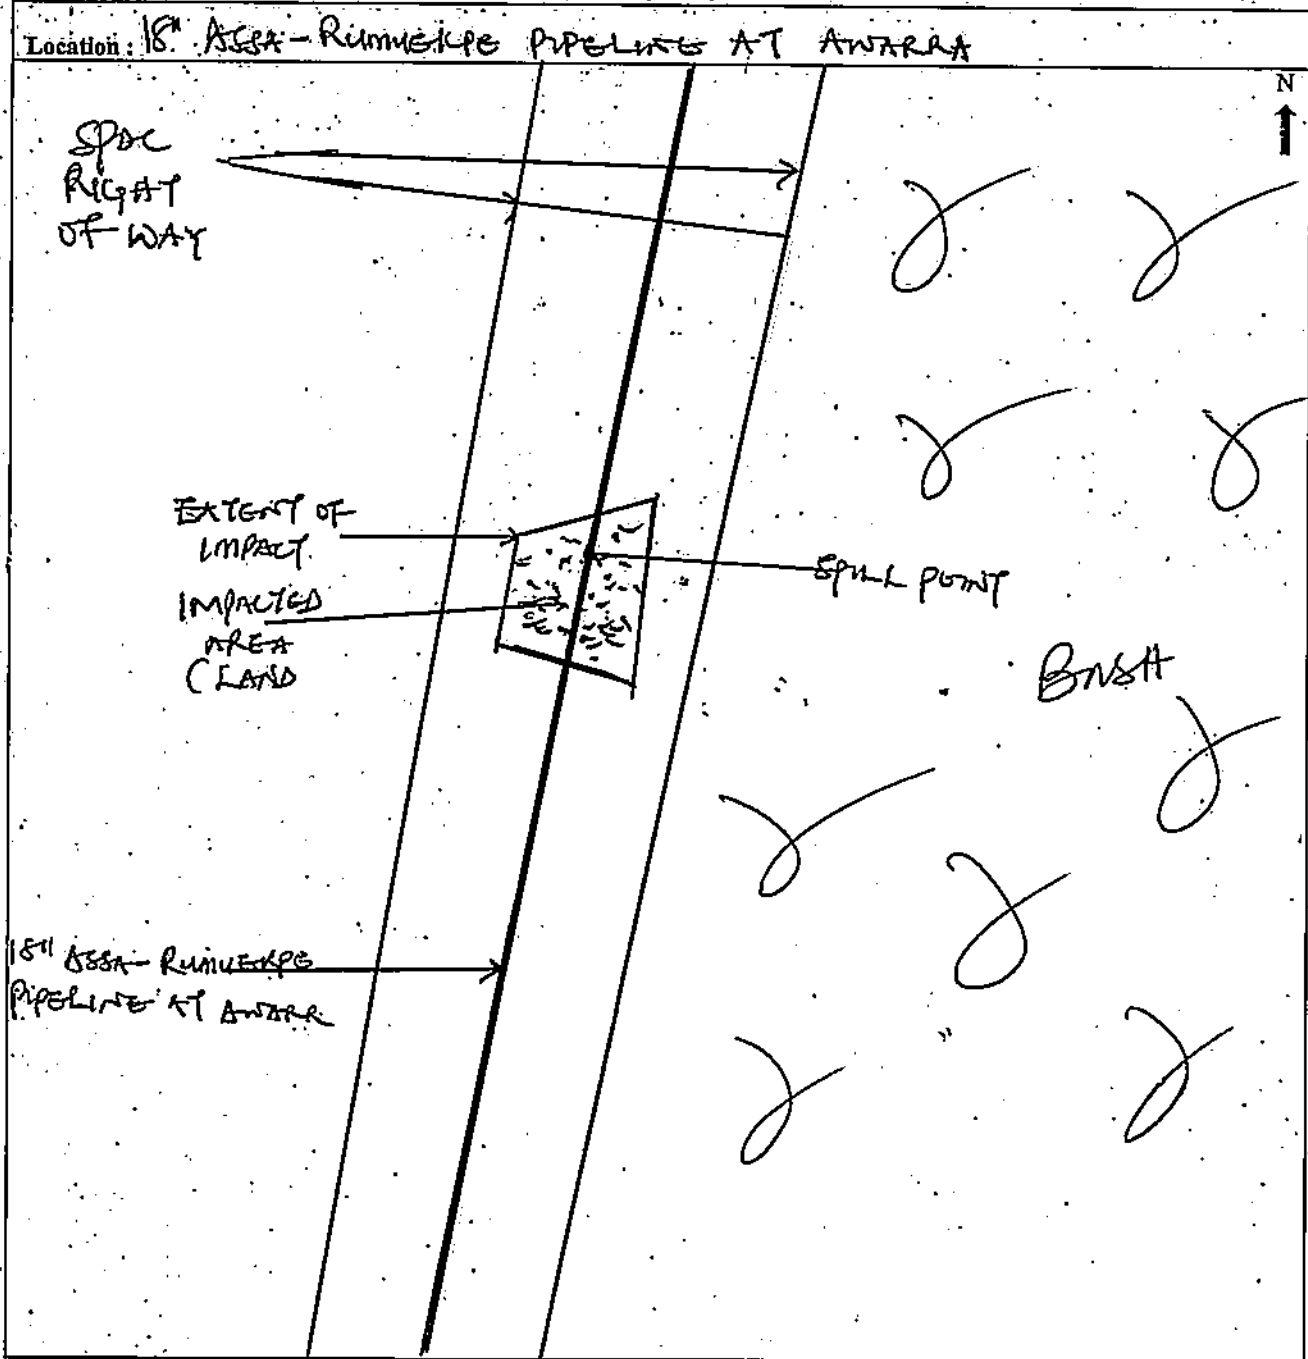 Location: 18" ASSA-RUMUEKPE PIPELINE AT AWARRA
N
SPDC
RIGHT
OF WAY
EXTENT OF
IMPACT
SPILL POINT
IMPACTED
AREA
(LAND
BUSH
18" ASSA-RUMUEKPE
PIPELINE AT AWARR